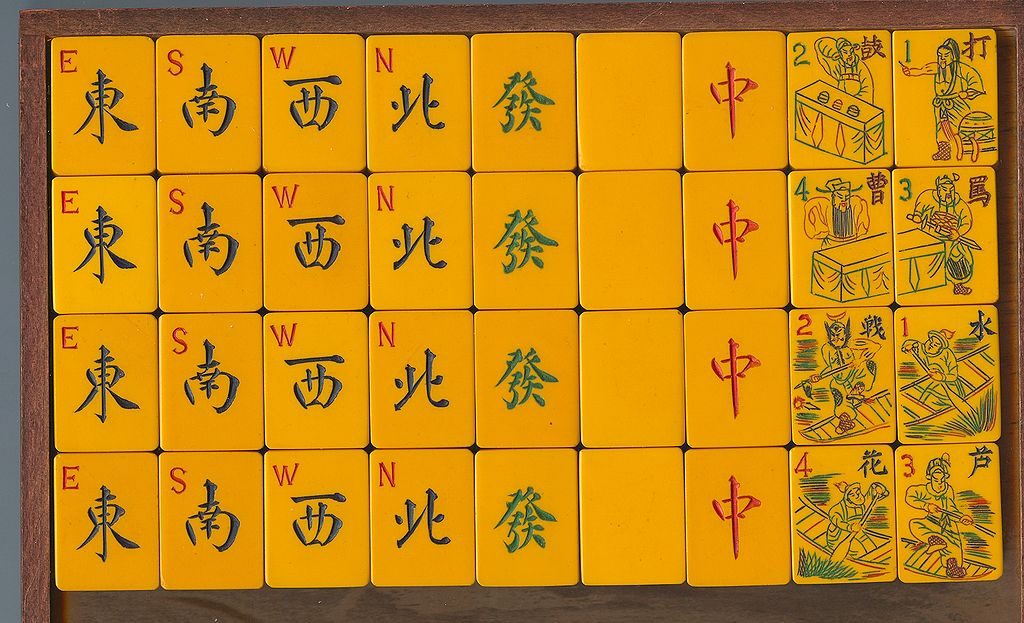 E 東 S 南 W 西 N 北 發 中 2 鼓 1 打
E 東 S 南 W 西 N 北 發 中 4 曹 3 罵
E 東 S 南 W 西 N 北 發 中 2 戦 1 水
E 東 S 南 W 西 N 北 發 中 4 花 3 芦